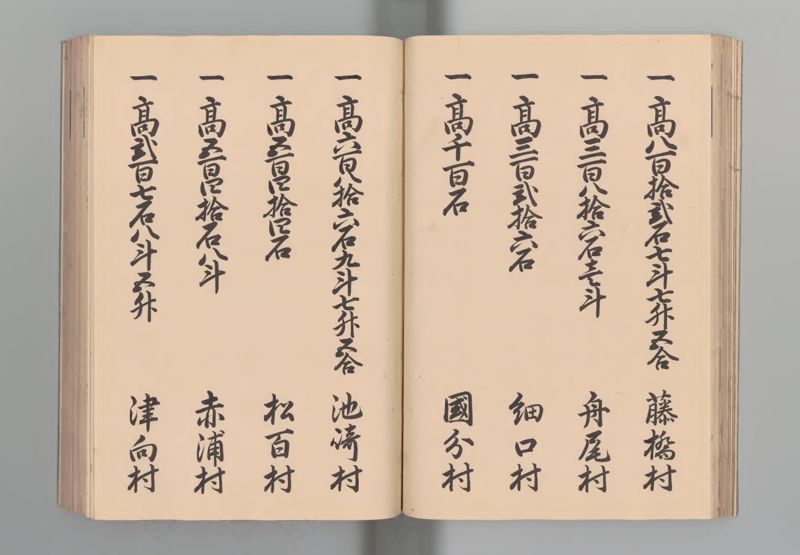 一 高八百拾弐石七斗七升五合 藤橋村
一 高三百八拾六石壱斗 舟尾村
一 高三百弐拾六石 細口村
一 高千百石 國分村
一 高六百八拾六石九斗七升五合 池崎村
一 高五百四拾四石 松百村
一 高五百四拾石八斗 赤浦村
一 高弐百七石八斗五升 津向村